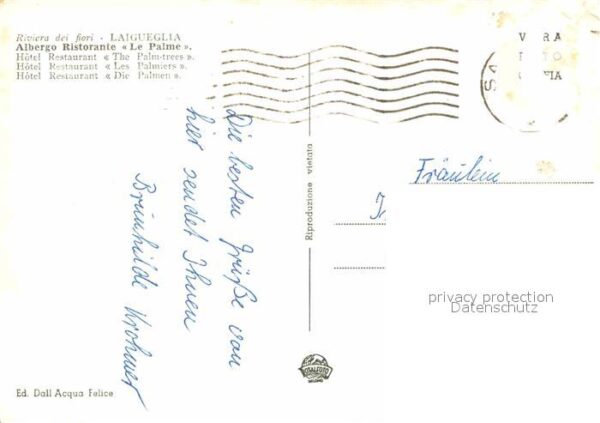 Riviera dei fiori - LAIGUEGLIA
Albergo Ristorante « Le Palme ».
Hôtel Restaurant « The Palm-trees ».
Hôtel Restaurant « Les Palmiers ».
Hôtel Restaurant « Die Palmen ».
Die besten Grüße von
hier sendet Ihnen
Brünhilde Krohmer
Riproduzione vietata
Fräulein
privacy protection
Datenschutz
Ed. Dall Acqua Felice